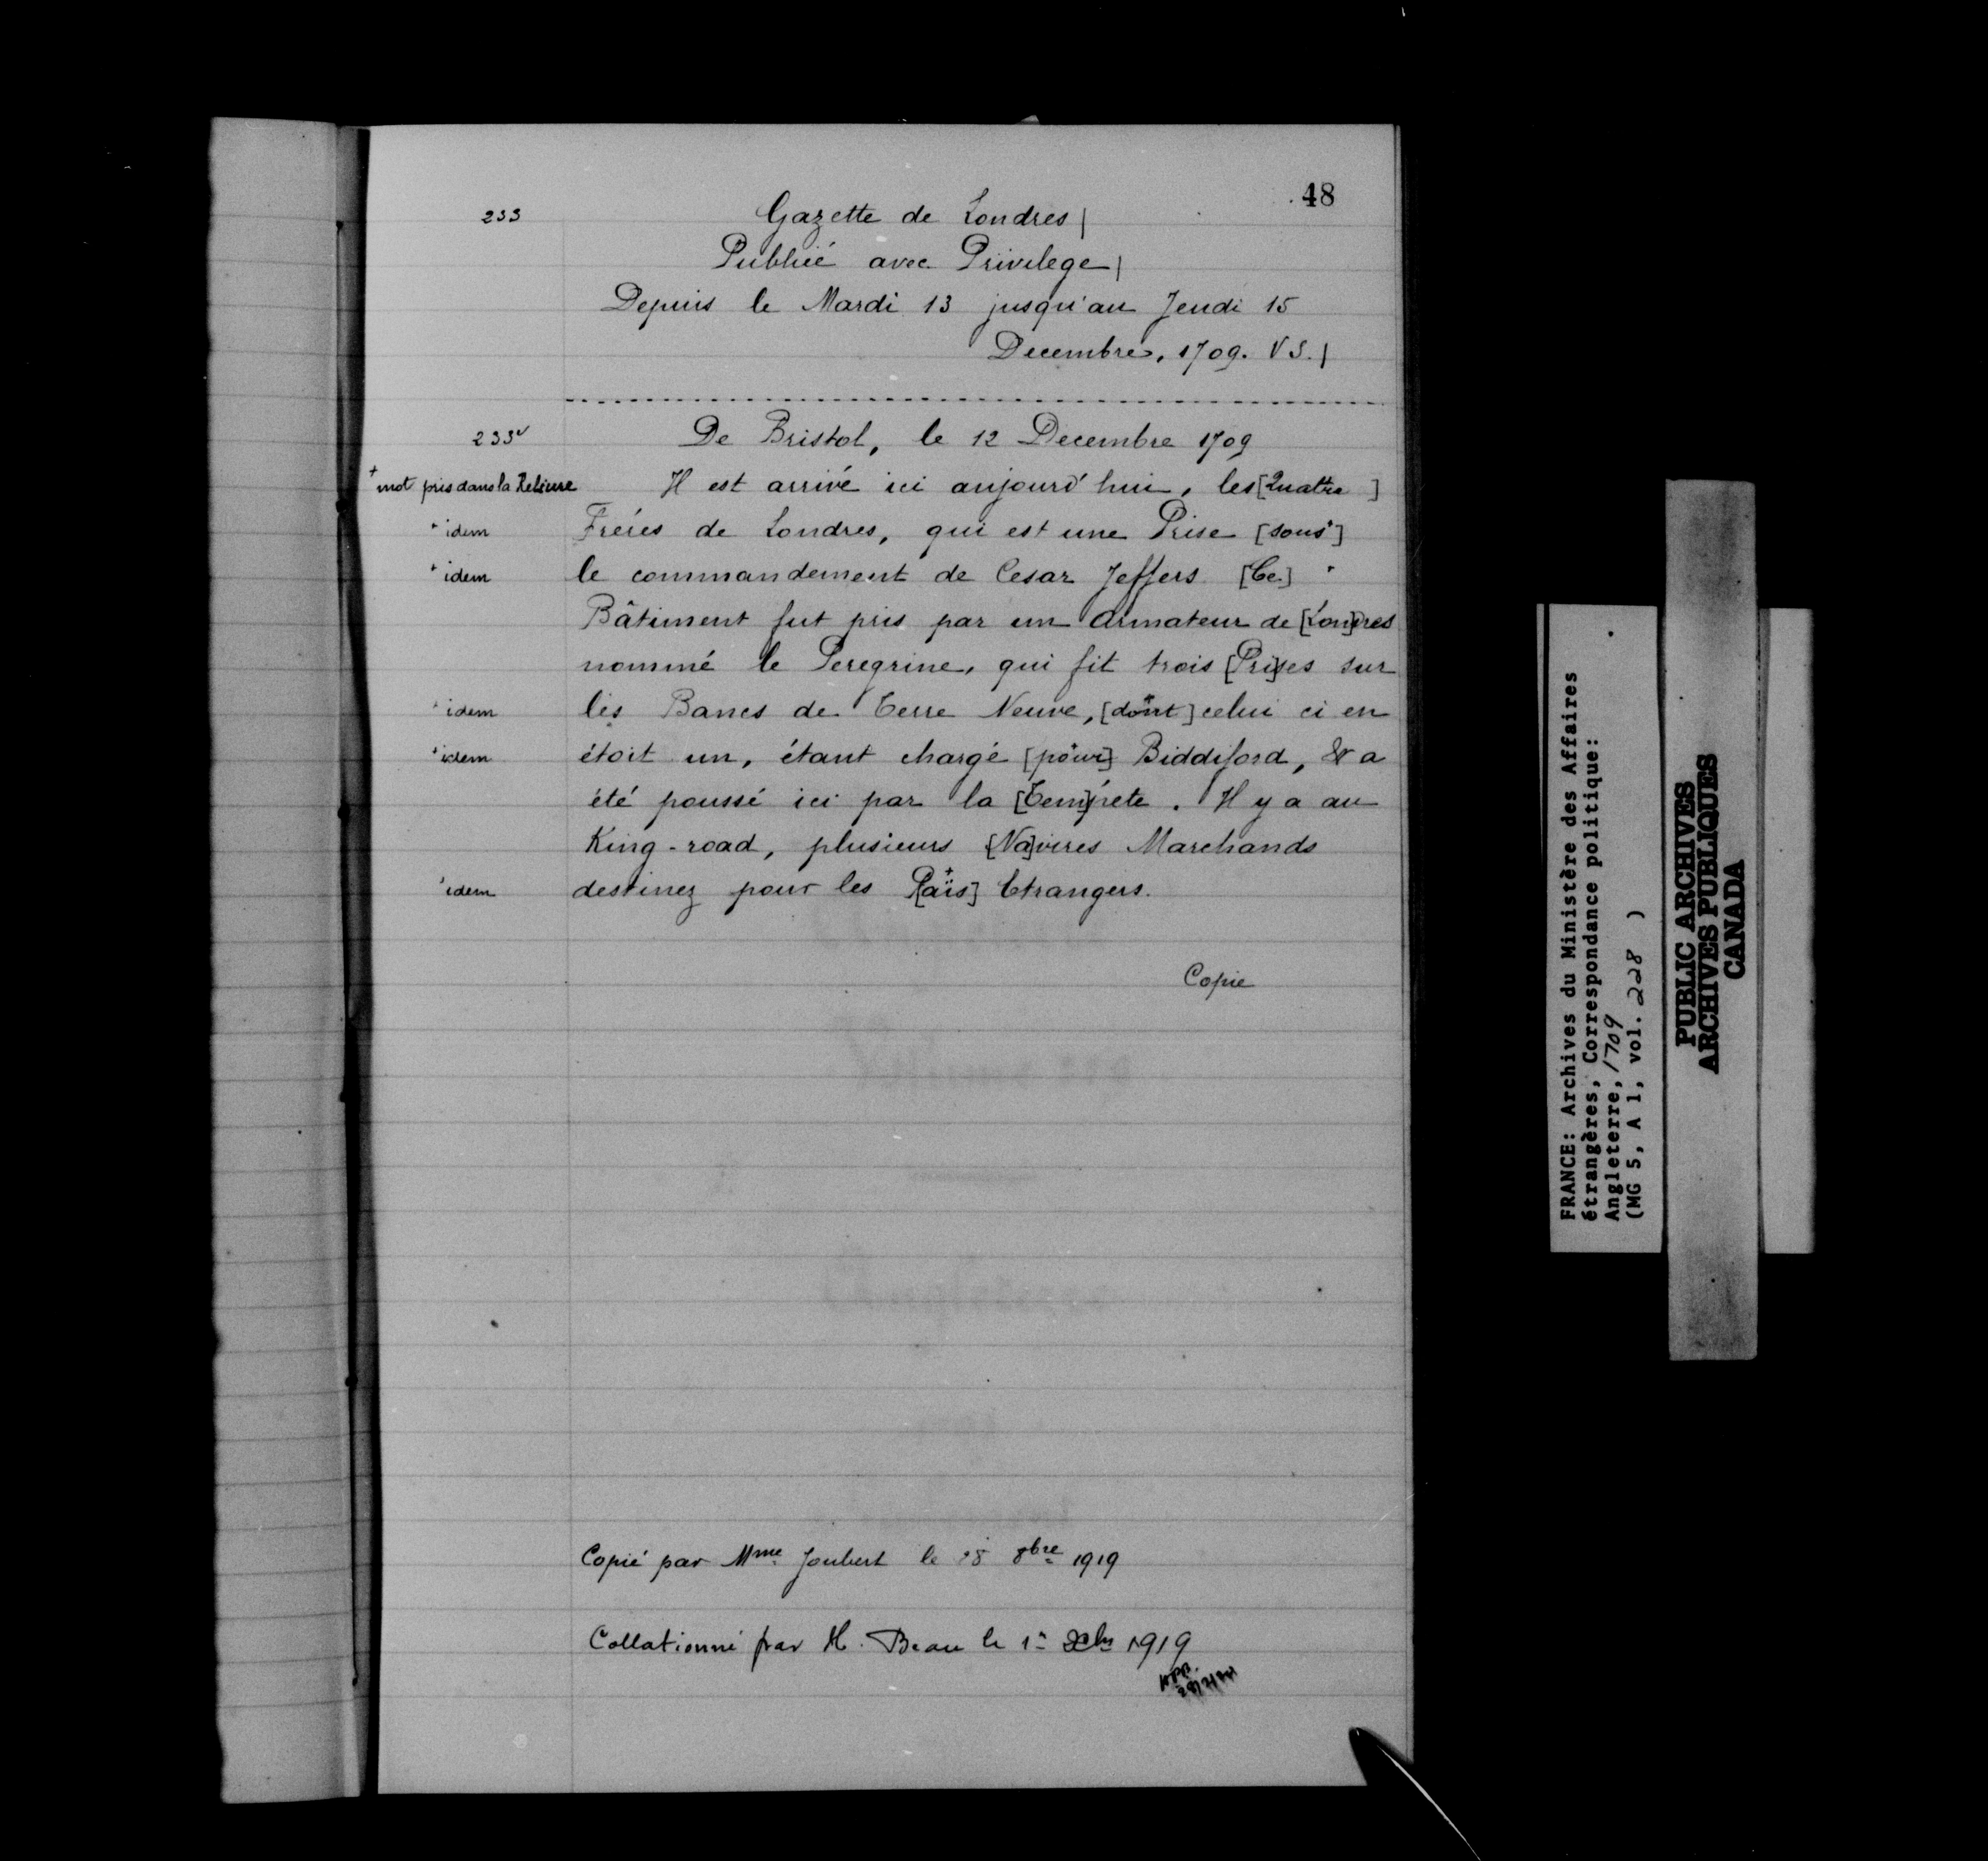 48
233 Gazette de Londres |
Publiée avec Privilege |
Depuis le Mardi 13 jusqu'au Jeudi 15
Decembre, 1709. V S. |
233v De Bristol, le 12 Decembre 1709
+ mot pris dans la Reliure Il est arrivé ici aujourd'hui, les [Quattre]
+ idem Fréres de Londres, qui est une Prise [sous+]
+ idem le commandement de Cesar Jeffers [Ce] +
Bâtiment fut pris par un Armateur de [Lon]dres
nommé le Peregrine, qui fit trois [Pri]ses sur
+ idem les Bancs de Terre Neuve, [dont+] celui ci en
+ idem étoit un, étant chargé [pour+] Biddiford, & a
été poussé ici par la [Tem]pête. Il y a au
King-road, plusieurs [Na]vires Marchands
+ idem destinez pour les P[aïs+] Etrangers.
Copie
Copié par Mme Joubert le 28 8bre 1919
Collationné par H. Beau le 1er Xbre 1919
FRANCE: Archives du Ministère des Affaires
étrangères, Correspondance politique:
Angleterre, 1709
(MG 5, A 1, vol. 228 )
PUBLIC ARCHIVES
ARCHIVES PUBLIQUES
CANADA